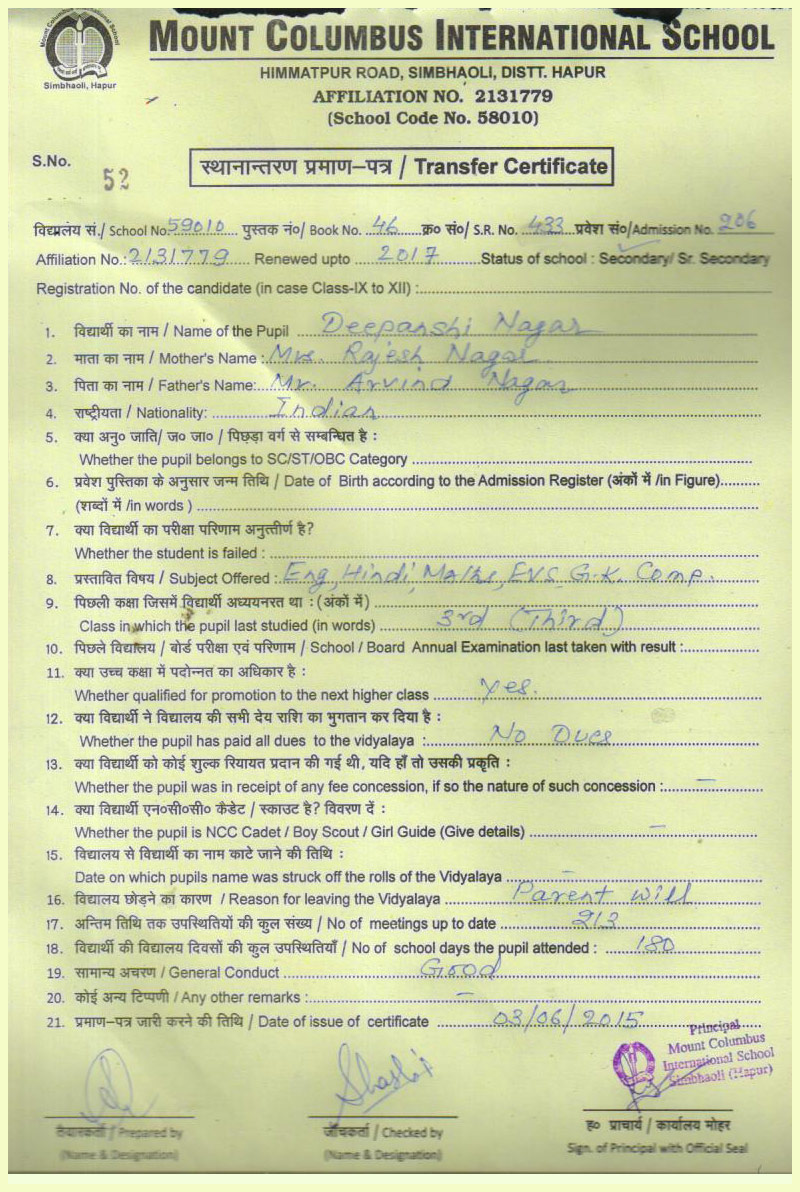 Mount Columbus International School
Simbhaoli, Hapur
MOUNT COLUMBUS INTERNATIONAL SCHOOL
HIMMATPUR ROAD, SIMBHAOLI, DISTT. HAPUR
AFFILIATION NO. 2131779
(School Code No. 58010)
S.No. 52
स्थानान्तरण प्रमाण–पत्र / Transfer Certificate
विद्यालय सं./ School No. 59010 पुस्तक नं०/ Book No. 46 क्र० सं०/ S.R. No. 433 प्रवेश सं०/Admission No. 206
Affiliation No.: 2131779 Renewed upto 2017 Status of school : Secondary/ Sr. Secondary
Registration No. of the candidate (in case Class-IX to XII) :
1. विद्यार्थी का नाम / Name of the Pupil Deepanshi Nagar
2. माता का नाम / Mother's Name : Mrs. Rajesh Nagar
3. पिता का नाम / Father's Name: Mr. Arvind Nagar
4. राष्ट्रीयता / Nationality: Indian
5. क्या अनु० जाति/ ज० जा० / पिछड़ा वर्ग से सम्बन्धित है :
Whether the pupil belongs to SC/ST/OBC Category
6. प्रवेश पुस्तिका के अनुसार जन्म तिथि / Date of Birth according to the Admission Register (अंकों में /in Figure)
(शब्दों में /in words )
7. क्या विद्यार्थी का परीक्षा परिणाम अनुत्तीर्ण है?
Whether the student is failed :
8. प्रस्तावित विषय / Subject Offered : Eng, Hindi, Maths, EVS, G.K. Comp.
9. पिछली कक्षा जिसमें विद्यार्थी अध्ययनरत था : (अंकों में)
Class in which the pupil last studied (in words) 3rd (Third)
10. पिछले विद्यालय / बोर्ड परीक्षा एवं परिणाम / School / Board Annual Examination last taken with result :
11. क्या उच्च कक्षा में पदोन्नत का अधिकार है :
Whether qualified for promotion to the next higher class yes.
12. क्या विद्यार्थी ने विद्यालय की सभी देय राशि का भुगतान कर दिया है :
Whether the pupil has paid all dues to the vidyalaya : No Dues
13. क्या विद्यार्थी को कोई शुल्क रियायत प्रदान की गई थी, यदि हाँ तो उसकी प्रकृति :
Whether the pupil was in receipt of any fee concession, if so the nature of such concession : —
14. क्या विद्यार्थी एन०सी०सी० कैडेट / स्काउट है? विवरण दें :
Whether the pupil is NCC Cadet / Boy Scout / Girl Guide (Give details) —
15. विद्यालय से विद्यार्थी का नाम काटे जाने की तिथि :
Date on which pupils name was struck off the rolls of the Vidyalaya —
16. विद्यालय छोड़ने का कारण / Reason for leaving the Vidyalaya Parent will
17. अन्तिम तिथि तक उपस्थितियों की कुल संख्य / No of meetings up to date 213
18. विद्यार्थी की विद्यालय दिवसों की कुल उपस्थितियाँ / No of school days the pupil attended : 180
19. सामान्य अचरण / General Conduct Good
20. कोई अन्य टिप्पणी / Any other remarks : —
21. प्रमाण–पत्र जारी करने की तिथि / Date of issue of certificate 03/06/2015
Principal
Mount Columbus
International School
Simbhaoli (Hapur)
Shashi
तैयारकर्ता / Prepared by
(Name & Designation)
जाँचकर्ता / Checked by
(Name & Designation)
ह० प्राचार्य / कार्यालय मोहर
Sign. of Principal with Official Seal